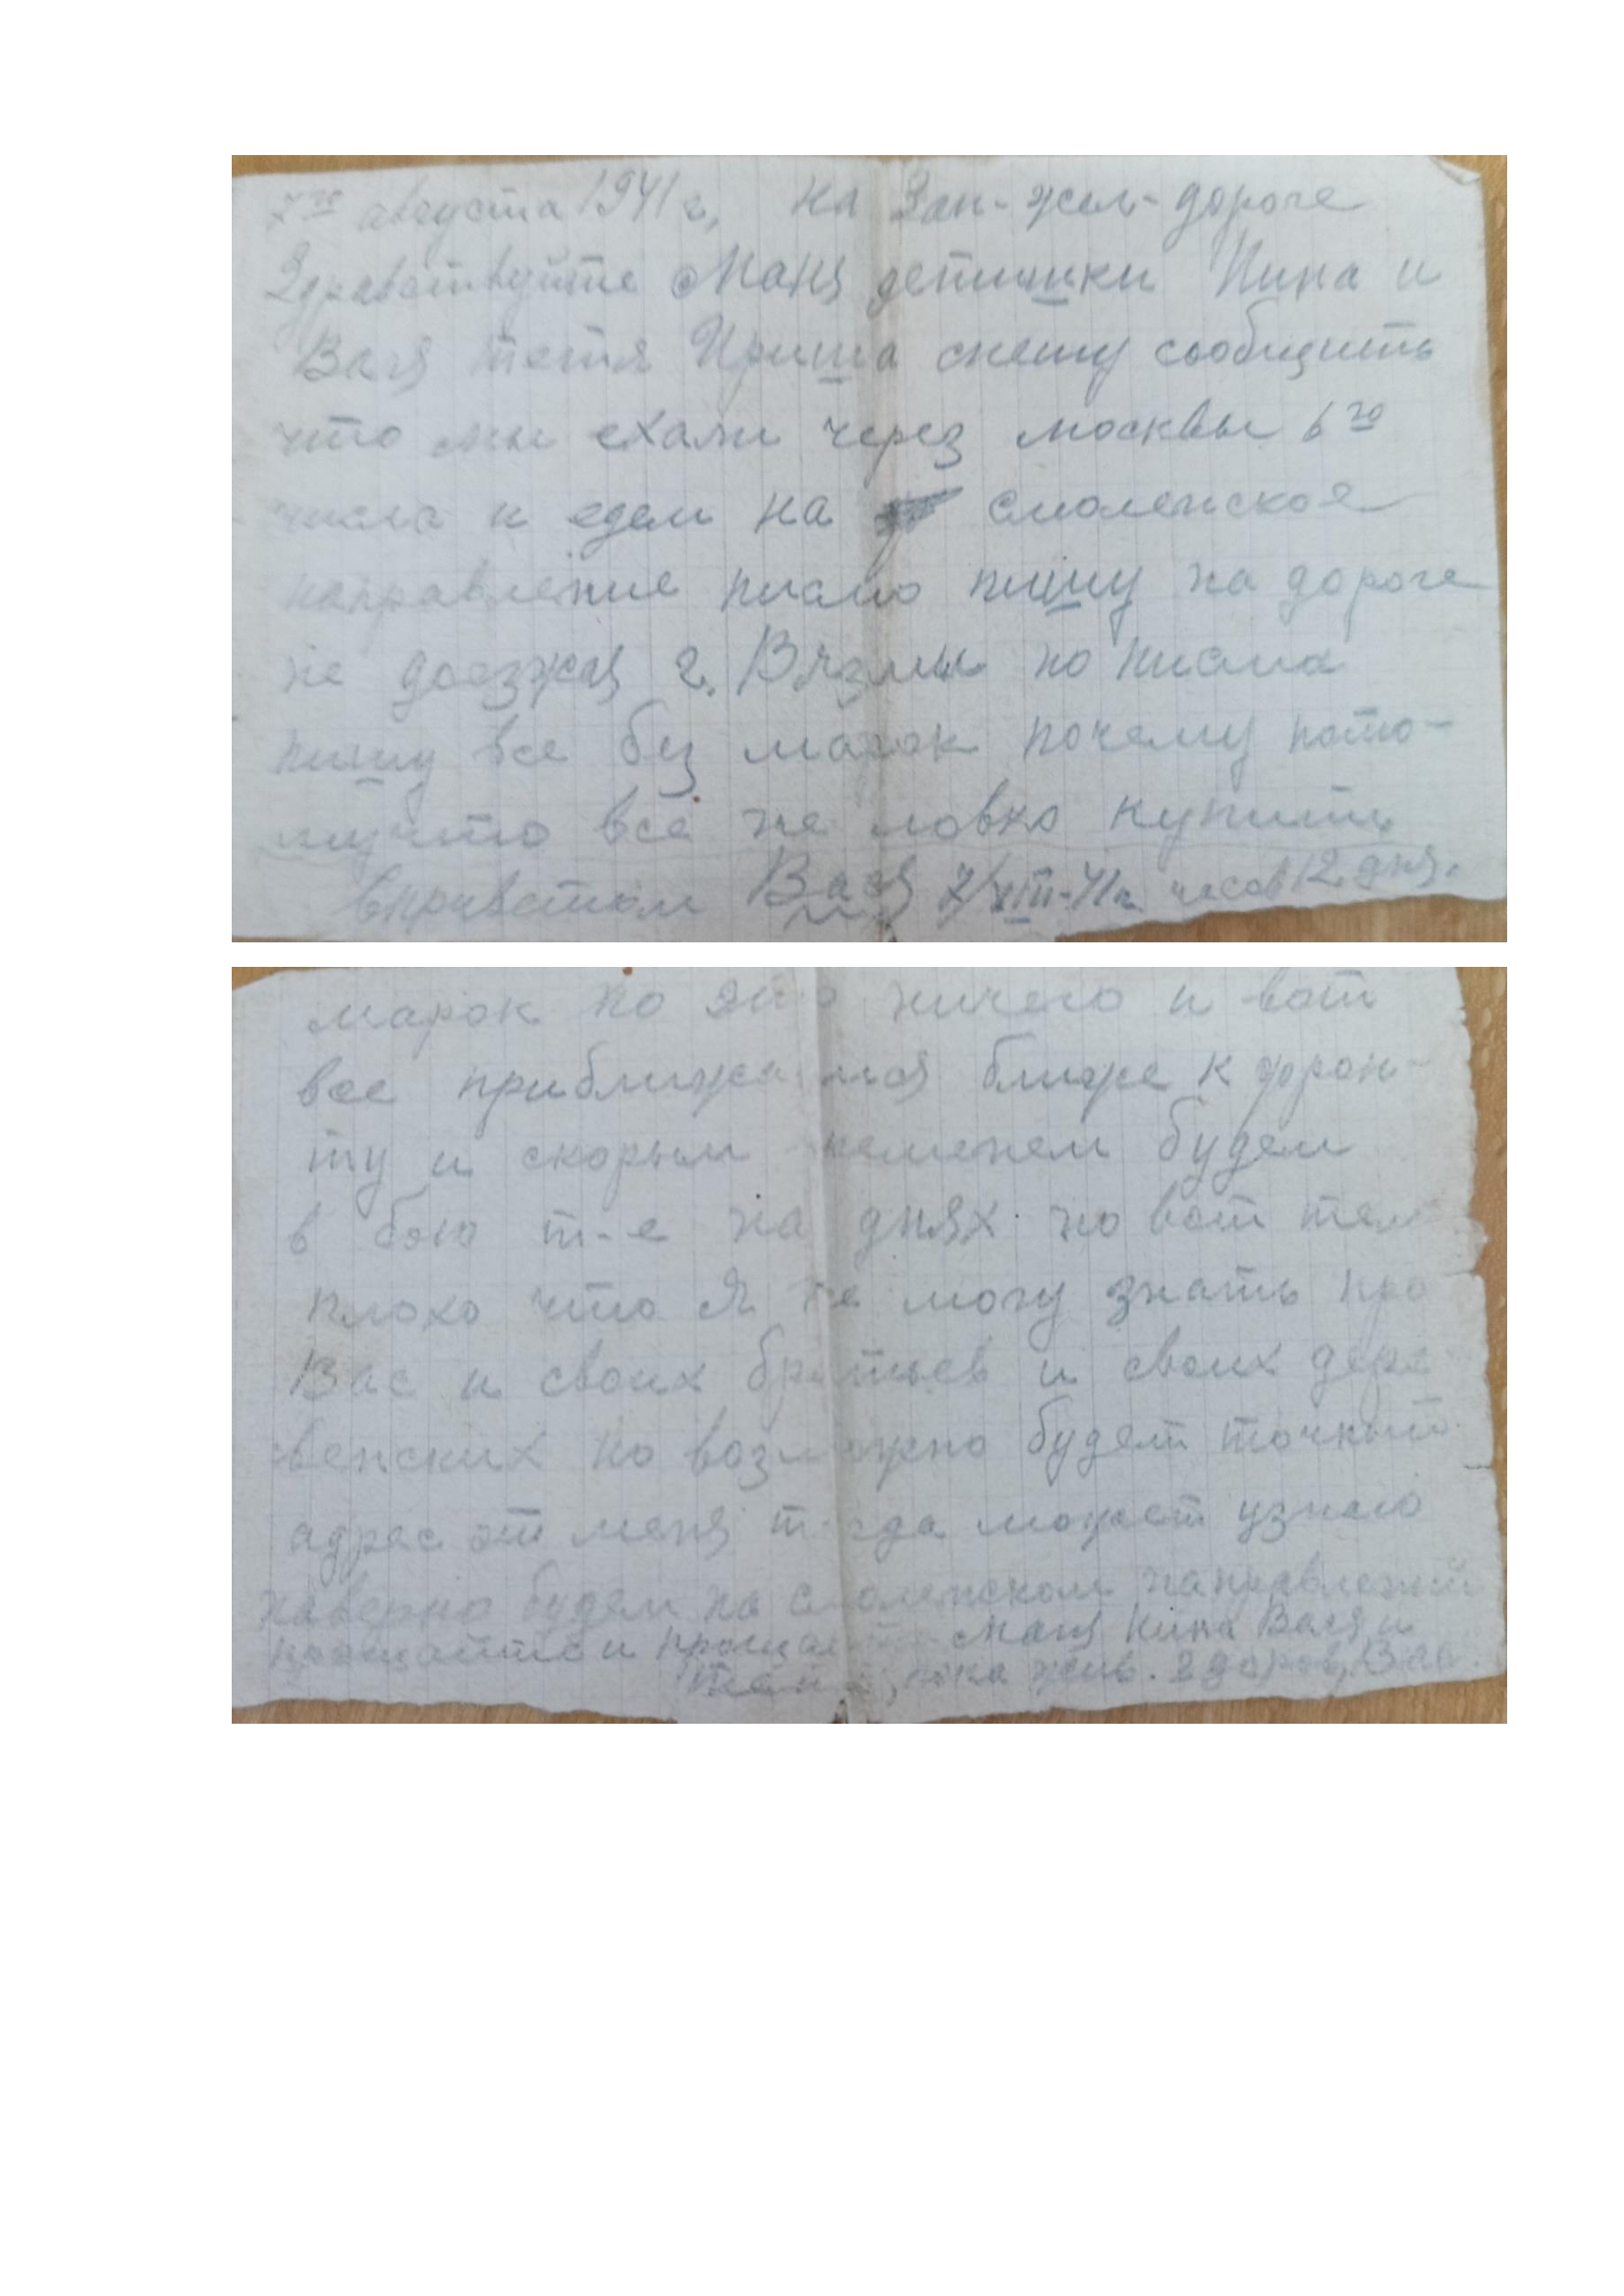 7го августа 1941 г. на Зап-жел-дороге
Здравствуйте Маня детишки Нина и
Вася тетя Ириша спешу сообщить
что мы ехали через москвы 6го
числа и едем на смоленское
направление писмо пишу на дороге
не доезжая г. Вязмы но писма
пишу все без марок почему пото-
мучто всё не ловко купить
Сприветом Вася 7/VIII-41г. часов 12 дня.
марок но это ничего и вот
все приближаимся ближе к фрон-
ту и скорым временем будем
в бою т-е на днях. но вот тем
плохо что я не могу знать про
Вас и своих братьев и своих дере
венских но возможно будет точный
адрес от меня тогда может узнаю
наверно будем на смоленском направлений
прощайте и прощайте Маня Нина Вася и
пока жив. здоров, Вас.